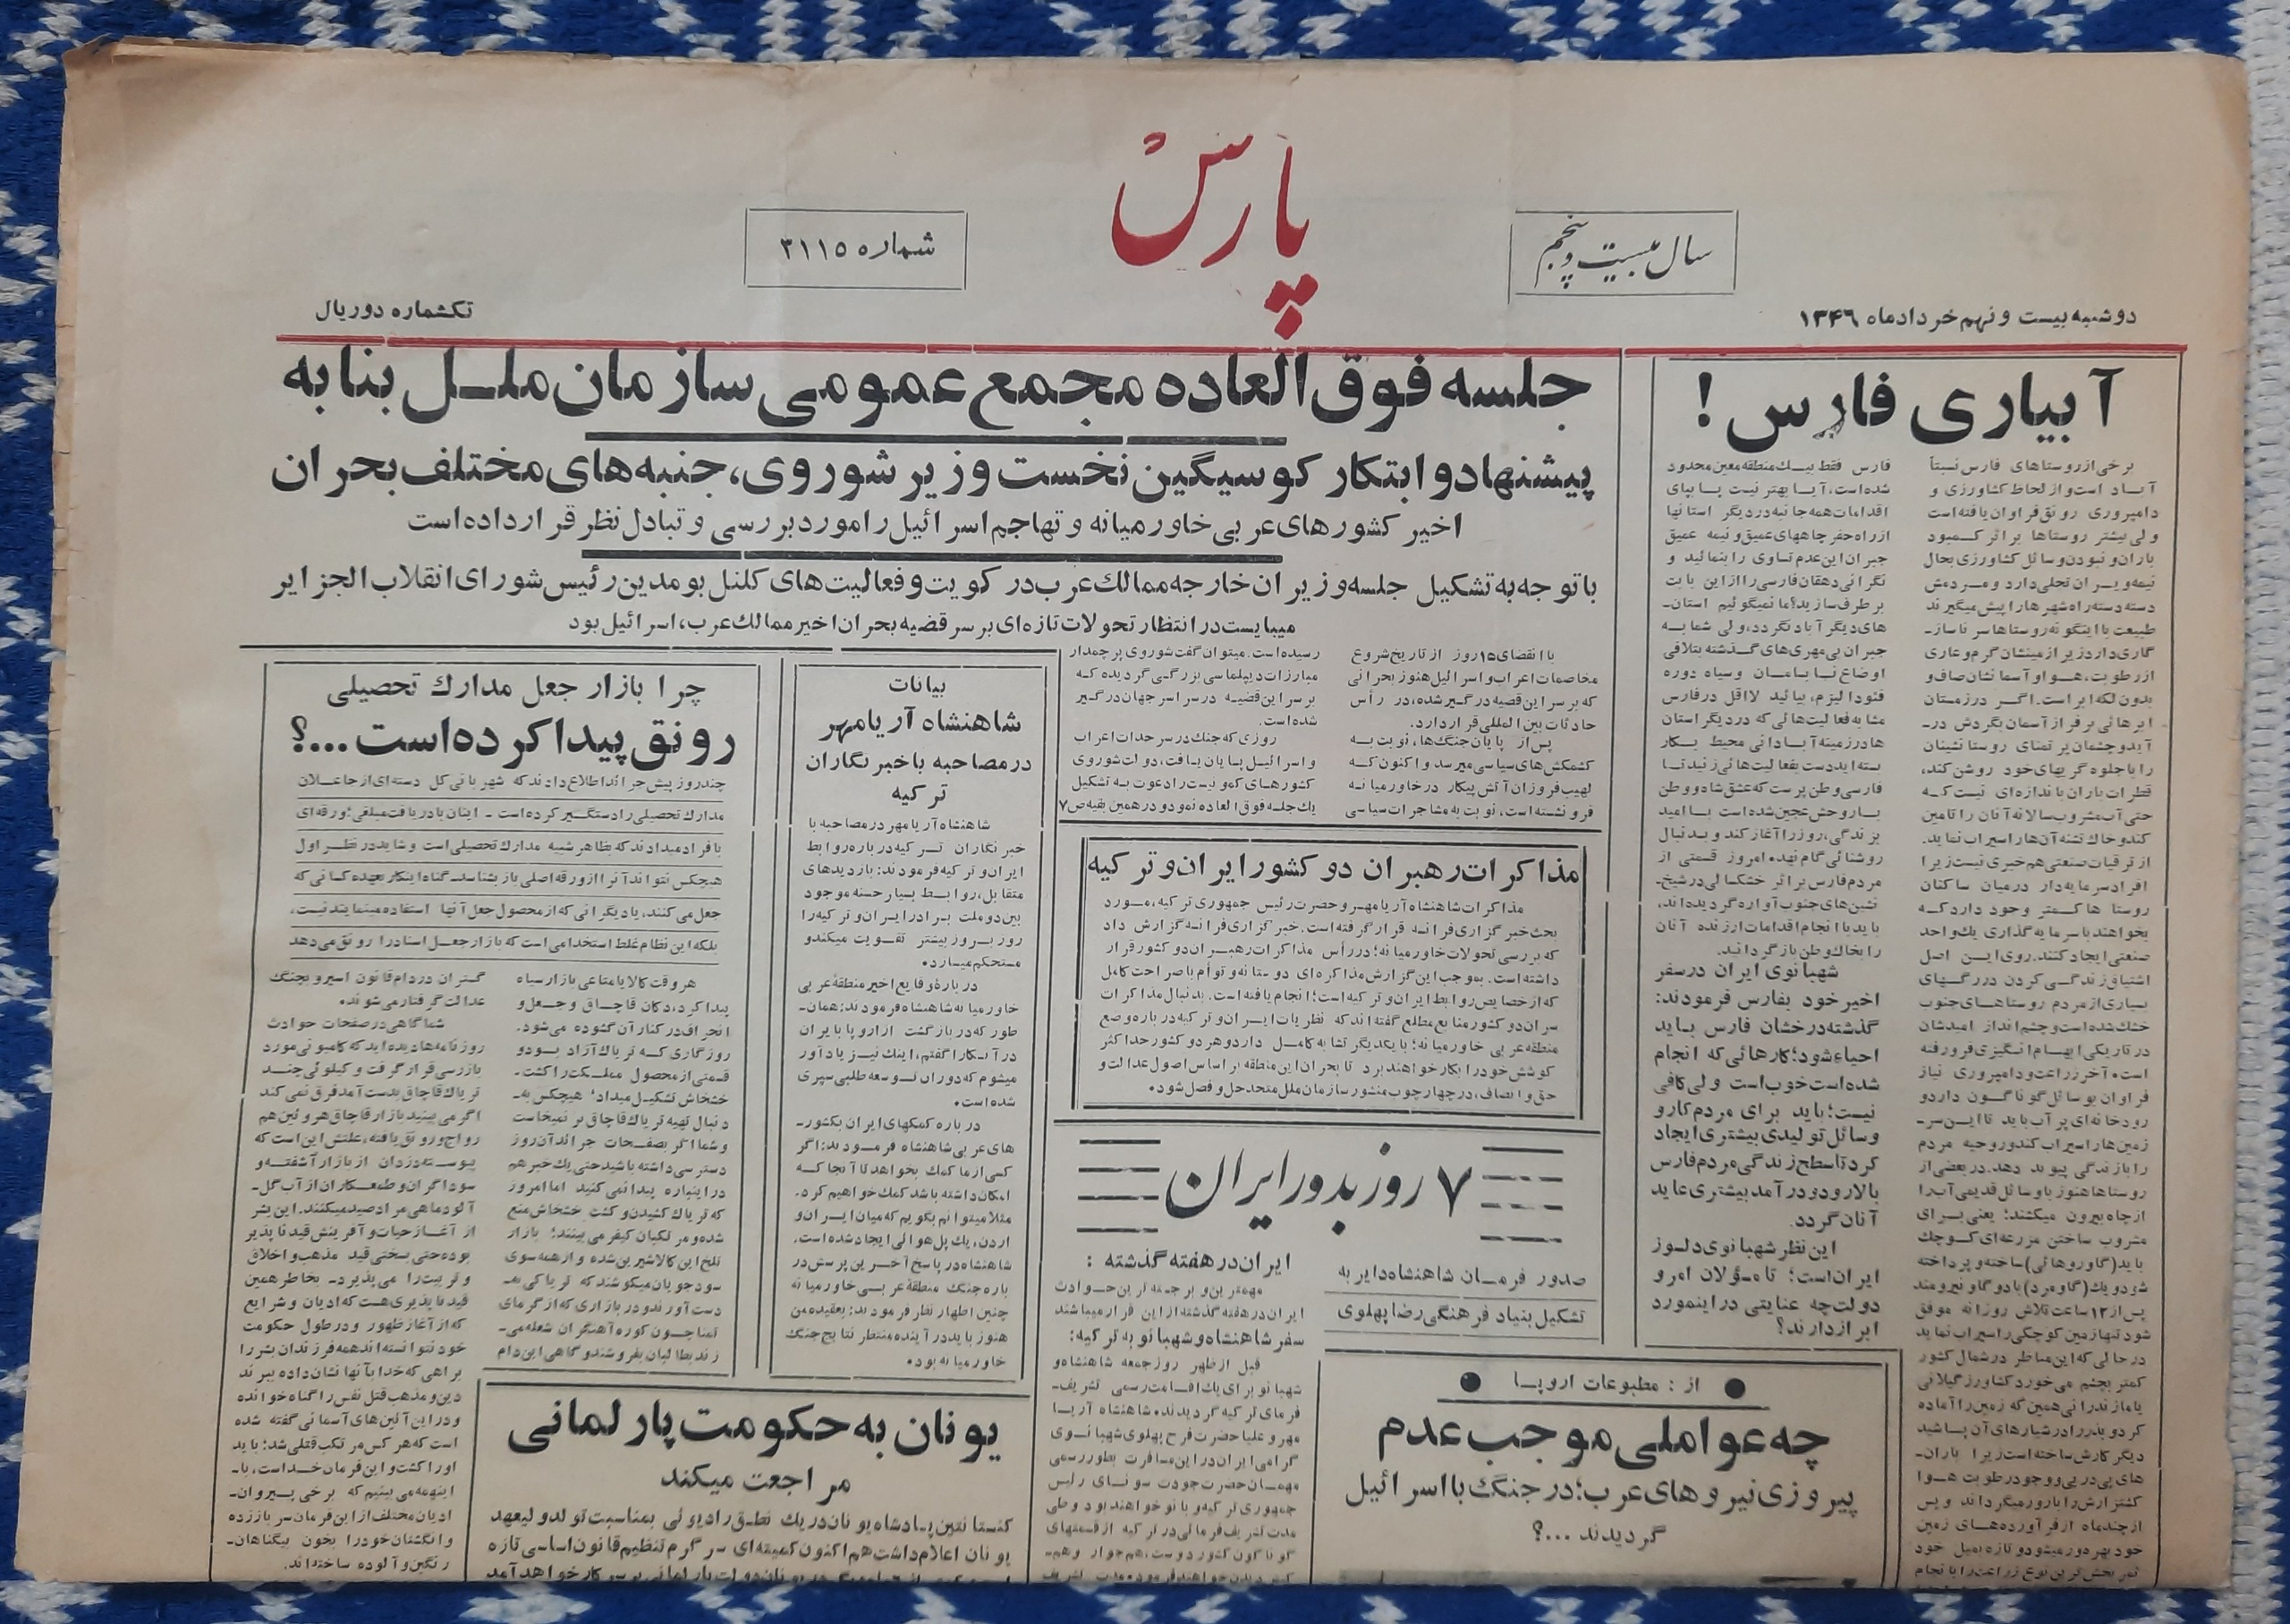 پارس
سال بیست و پنجم
شماره ۳۱۱۵
دوشنبه بیست و نهم خرداد ماه ۱۳۴۶
تکشماره دو ریال
آبیاری فارس !
برخی از روستاهای فارس نسبتاً
آباد است و از لحاظ کشاورزی و
دامپروری رونق فراوان یافته است
ولی بیشتر روستاها بر اثر کمبود
باران و نبودن وسائل کشاورزی بحال
نیمه ویران تجلی دارد و مردمش
دسته دسته راه شهرها را پیش میگیرند
طبیعت با اینگونه روستاها سر ناساز-
گاری دارد زیرا زمینشان گرم و عاری
از رطوبت، هوا و آسمانشان صاف و
بدون لکه ابر است. اگر در زمستان
ابرهائی بر فراز آسمان بگردش در-
آید و چشمان پر تمنای روستا نشینان
را با جلوه گریهای خود روشن کند،
قطرات باران باندازه‌ای نیست که
حتی آب مشروب سالانه آنان را تامین
کند و خاک تشنه آن‌ها را سیراب نماید.
از ترقیات صنعتی هم خبری نیست زیرا
افراد سرمایه‌دار درمیان ساکنان
روستا ها کمتر وجود دارد که
بخواهند با سرمایه گذاری یك واحد
صنعتی ایجاد کنند. روی این اصل
اشتیاق زندگی کردن در رگهای
بسیاری از مردم روستاهای جنوب
خشك شده است و چشم انداز امیدشان
در تاریکی ابهام انگیزی فرو رفته
است. آخر زراعت و دامپروری نیاز
فراوان بوسائل گوناگون دارد و
رودخانه‌ای پر آب باید تا این سر-
زمین‌ها را سیراب کند و روحیه مردم
را با زندگی پیوند دهد. در بعضی از
روستاها هنوز با وسائل قدیمی آب را
از چاه بیرون میکشند؛ یعنی برای
مشروب ساختن مزرعه‌ای کوچك
باید (گاوروهائی) ساخته و پرداخته
شود و یك (گاومرد) با دو گاو نیرومند
پس از ۱۲ ساعت تلاش روزانه موفق
شود تنها زمین کوچکی را سیراب نماید
در حالی که این مناظر در شمال کشور
کمتر بچشم می‌خورد کشاورز گیلانی
یا مازندرانی همین که زمین را آماده
کرد و بذر را در شیارهای آن پاشید
دیگر کارش ساخته است زیرا باران-
های پی در پی و وجود رطوبت هوا
کشتزارش را بارور میگرداند و پس
از چند ماه از فرآورده‌های زمین
خود بهره‌ور میشود و تازه بمیل خود
فارس فقط بیك منطقه معین محدود
شده است، آیا بهتر نیست پا بپای
اقدامات همه جانبه در دیگر استانها
از راه حفر چاههای عمیق و نیمه عمیق
جبران این عدم تساوی را بنمائید و
نگرانی دهقان فارسی را از این بابت
بر طرف سازید؟ ما نمیگوئیم استان-
های دیگر آباد نگردد، ولی شما به
جبران بی‌مهری‌های گذشته بتلافی
اوضاع نابسامان و سیاه دوره
فئودالیزم، بیائید لااقل در فارس
مشابه فعالیت‌هائی که در دیگر استان
ها در زمینه آبادانی محیط بکار
بسته اید دست بفعالیت‌هائی زنید تا
فارسی وطن پرست که عشق شاه و وطن
با روحش عجین شده است با امید
بزندگی، روز را آغاز کند و بدنبال
روشنائی گام نهد. امروز قسمتی از
مردم فارس بر اثر خشکسالی در شیخ-
نشین‌های جنوب آواره گردیده‌اند،
باید با انجام اقدامات ارزنده آنان
را بخاك وطن باز گردانید.
شهبانوی ایران در سفر
اخیر خود بفارس فرمودند:
گذشته درخشان فارس باید
احیاء شود؛ کارهائی که انجام
شده است خوب است ولی کافی
نیست؛ باید برای مردم کار و
وسائل تولیدی بیشتری ایجاد
کرد تا سطح زندگی مردم فارس
بالا رود و در آمد بیشتری عاید
آنان گردد.
این نظر شهبانوی دلسوز
ایران است؛ تا مسؤلان امر و
دولت چه عنایتی در اینمورد
ابراز دارند؟
جلسه فوق العاده مجمع عمومی سازمان ملل بنا به
پیشنهاد و ابتکار کوسیگین نخست وزیر شوروی، جنبه‌های مختلف بحران
اخیر کشورهای عربی خاور میانه و تهاجم اسرائیل را مورد بررسی و تبادل نظر قرار داده است
با توجه به تشکیل جلسه وزیران خارجه ممالك عرب در کویت و فعالیت‌های کلنل بومدین رئیس شورای انقلاب الجزایر
میبایست در انتظار تحولات تازه‌ای بر سر قضیه بحران اخیر ممالك عرب، اسرائیل بود
با انقضای ۱۵ روز از تاریخ شروع
مخاصمات اعراب و اسرائیل هنوز بحرانی
که بر سر این قضیه در گیر شده، در رأس
حادثات بین المللی قرار دارد.
پس از پایان جنگ‌ها، نوبت به
کشمکش‌های سیاسی میرسد و اکنون که
لهیب فروزان آتش پیکار در خاور میانه
فرو نشسته است، نوبت به مشاجرات سیاسی
رسیده است. میتوان گفت شوروی پرچمدار
مبارزات دیپلماسی بزرگی گردیده که
بر سر این قضیه در سراسر جهان در گیر
شده است.
روزی که جنك در سرحدات اعراب
و اسرائیل پایان یافت، دولت شوروی
کشورهای کمونیست را دعوت به تشکیل
یك جلسه فوق العاده نمود و در همین بقیه ص ۷
مذاکرات رهبران دو کشور ایران و ترکیه
مذاکرات شاهنشاه آریامهر و حضرت رئیس جمهوری ترکیه، مورد
بحث خبرگزاری فرانسه قرار گرفته است. خبرگزاری فرانسه گزارش داد
که بررسی تحولات خاورمیانه؛ در رأس مذاکرات رهبران دو کشور قرار
داشته است. بموجب این گزارش مذاکره‌ای دوستانه و توأم با صراحت کامل
که از خصایص روابط ایران و ترکیه است؛ انجام یافته است. بدنبال مذاکرات
سران دو کشور منابع مطلع گفته‌اند که نظریات ایران و ترکیه درباره وضع
منطقه عربی خاور میانه؛ با یکدیگر تشابه کامل دارد و هر دو کشور حداکثر
کوشش خود را بکار خواهند برد تا بحران این منطقه بر اساس اصول عدالت و
حق و انصاف، در چهار چوب منشور سازمان ملل متحد حل و فصل شود.
۷ روز بدور ایران
صدور فرمان شاهنشاه دایر به
تشکیل بنیاد فرهنگی رضا پهلوی
ایران در هفته گذشته :
مهمترین و برجسته ترین حوادث
ایران در هفته گذشته از این قرار میباشند
سفر شاهنشاه و شهبانو به ترکیه:
قبل از ظهر روز جمعه شاهنشاه و
شهبانو برای یك اقامت رسمی تشریف-
فرمای ترکیه گردیدند. شاهنشاه آریا
مهر و علیا حضرت فرح پهلوی شهبانوی
گرامی ایران در این مسافرت بطور رسمی
مهمان حضرت جودت سونای رئیس
جمهوری ترکیه و بانو خواهند بود و طی
مدت تشریف فرمائی در ترکیه از قسمتهای
گوناگون کشور دوست، هم‌جوار و هم-
از : مطبوعات اروپا
چه عواملی موجب عدم
پیروزی نیروهای عرب؛ در جنگ با اسرائیل
گردیدند ...؟
بیانات
شاهنشاه آریامهر
در مصاحبه با خبرنگاران
ترکیه
شاهنشاه آریامهر در مصاحبه با
خبرنگاران ترکیه درباره روابط
ایران و ترکیه فرمودند: بازدیدهای
متقابل، روابط بسیار حسنه موجود
بین دو ملت برادر ایران و ترکیه را
روز بروز بیشتر تقویت میکند و
مستحکم میسازد.
درباره وقایع اخیر منطقه عربی
خاور میانه شاهنشاه فرمودند: همان-
طور که در بازگشت از اروپا با ایران
در آنکارا گفتم، اینك نیز یاد آور
میشوم که دوران توسعه طلبی سپری
شده است.
درباره کمکهای ایران بکشور-
های عربی شاهنشاه فرمودند: اگر
کسی از ما کمك بخواهد تا آنجا که
امکان داشته باشد کمك خواهیم کرد.
مثلا میتوانم بگویم که میان ایران و
اردن، یك پل هوائی ایجاد شده است.
شاهنشاه در پاسخ آخرین پرسش در
باره جنگ منطقه عربی خاور میانه
چنین اظهار نظر فرمودند: بعقیده من
هنوز باید در آینده منتظر نتایج جنگ
خاور میانه بود.
چرا بازار جعل مدارك تحصیلی
رونق پیدا کرده است ...؟
چند روز پیش جرائد اطلاع دادند که شهربانی کل دسته‌ای از جاعلان
مدارك تحصیلی را دستگیر کرده است - اینان با دریافت مبلغی؛ ورقه‌ای
بافراد میدادند که بظاهر شبیه مدارك تحصیلی است و شاید در نظر اول
هیچکس نتواند آنرا از ورقه اصلی باز بشناسد- گناه اینکار بعهده کسانی که
جعل می‌کنند، یا دیگرانی که از محصول جعل آنها استفاده مینمایند نیست،
بلکه این نظام غلط استخدامی است که بازار جعل اسناد را رونق می‌دهد
هر وقت کالا یا متاعی بازار سیاه
پیدا کرد، دکان قاچاق و جعل و
انحراف در کنار آن گشوده می‌شود.
روزگاری که تریاك آزاد بود و
قسمتی از محصول مملکت را کشت
خشخاش تشکیل میداد؛ هیچکس به-
دنبال تهیه تریاك قاچاق بر نمیخاست
و شما اگر بصفحات جرائد آن روز
دسترسی داشته باشید حتی یك خبر هم
در اینباره پیدا نمی‌کنید اما امروز
که تریاك کشیدن و کشت خشخاش منع
شده و مرتکبان کیفر می‌بینند؛ بازار
تلخ این کالا شیرین شده و از همه سوی
سودجویان میکوشند که تریاکی به-
دست آورند و در بازاری که از گرمای
زند بطالبان بفروشند و گاهی این دام
گستران در دام قانون اسیر و بچنگ
عدالت گرفتار می‌شوند.
شما گاهی در صفحات حوادث
روزنامه‌ها دیده اید که کامیونی مورد
بازرسی قرار گرفت و کیلوئی چند
تریاك قاچاق بدست آمد فرق نمی کند
اگر می بینید بازار قاچاق هروئین هم
رواج و رونق یافته، علتش این است که
پیوسته دزدان از بازار آشفته و
سوداگران و طمعکاران از آب گل-
آلود ماهی مراد صید میکنند. این بشر
از آغاز حیات و آفرینش قید ناپذیر
بوده حتی بسختی قید مذهب و اخلاق
و تربیت را می پذیرد- بخاطر همین
قید ناپذیری هست که ادیان و شرایع
که از آغاز ظهور و در طول حکومت
خود نتوانسته‌اند همه فرزندان بشر را
براهی که خدا بآنها نشان داده ببرند
دین و مذهب قتل نفس را گناه خوانده
و در این آئین‌های آسمانی گفته شده
است که هر کس مرتکب قتلی شد؛ باید
او را کشت و این فرمان خداست، با-
اینهمه می بینیم که برخی پیروان-
ادیان مختلف از این فرمان سر باز زده
و انگشتان خود را بخون بیگناهان-
رنگین و آلوده ساخته اند.
یونان به حکومت پارلمانی
مراجعت میکند
کنستانتین پادشاه یونان در یك نطق رادیوئی بمناسبت تولد ولیعهد
یونان اعلام داشت هم اکنون کمیته‌ای سر گرم تنظیم قانون اساسی تازه